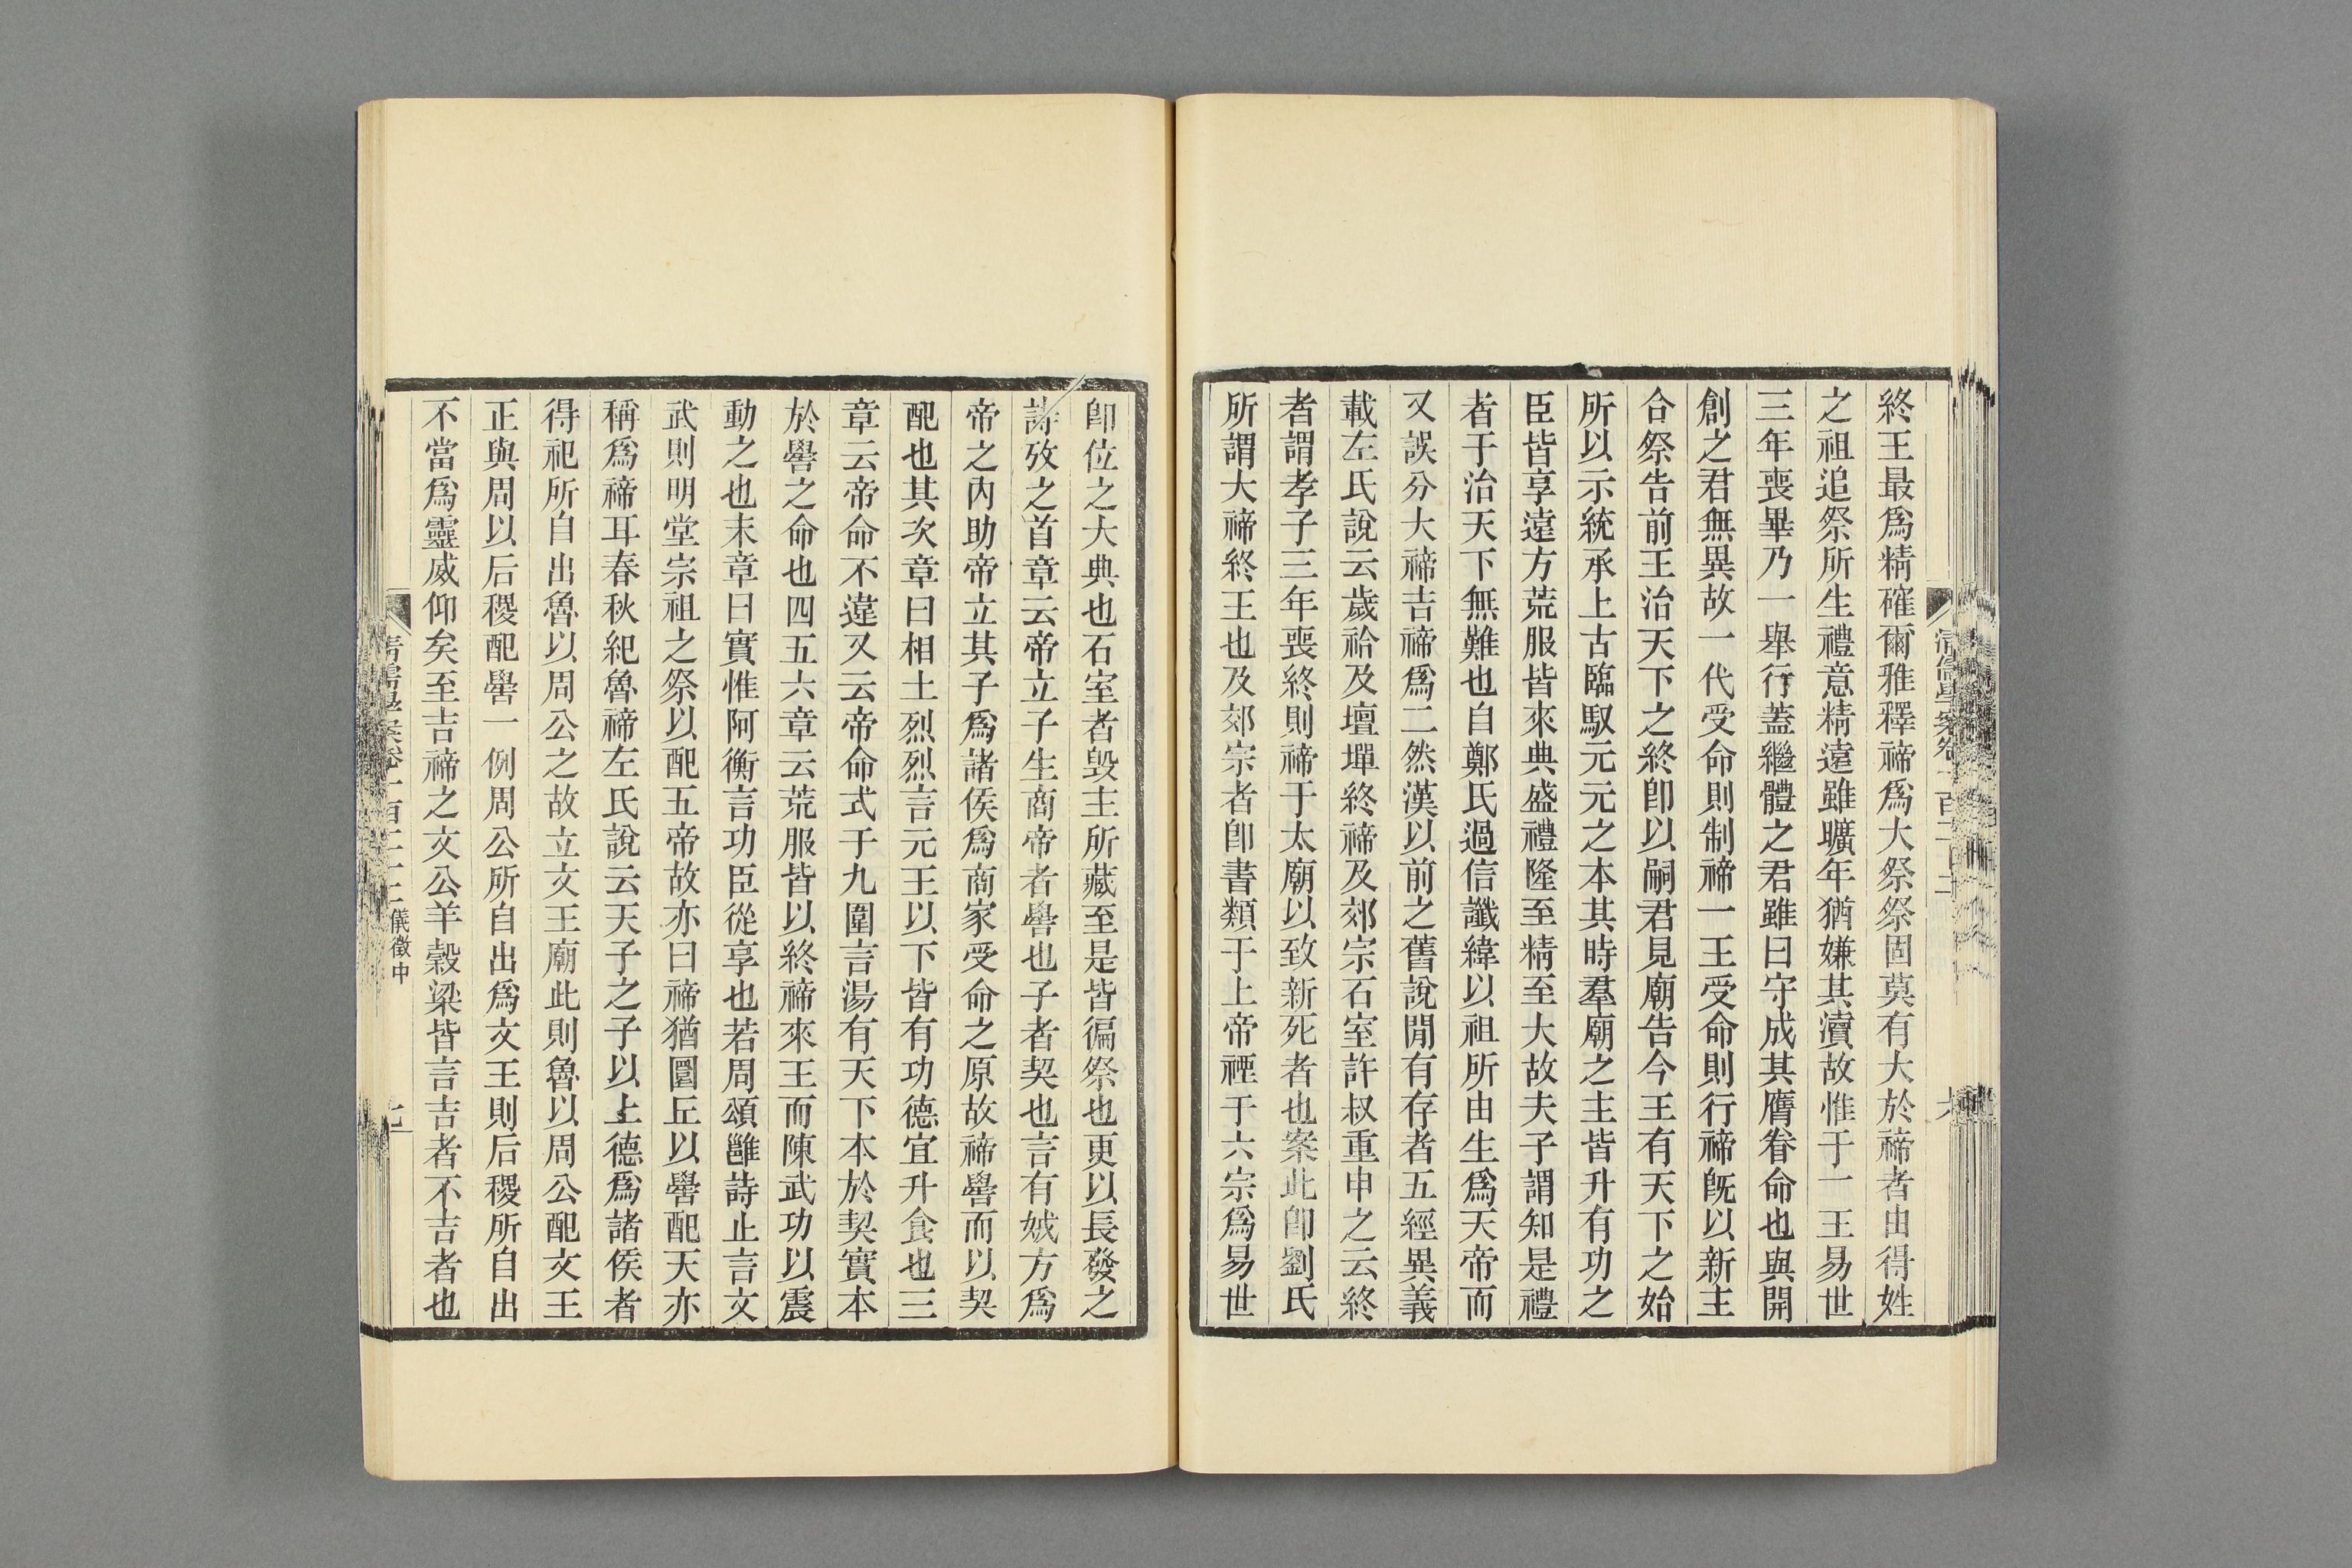 終王最爲精確爾雅釋禘爲大祭祭固莫有大於禘者由得姓
之祖追祭所生禮意精遠雖曠年猶嫌其瀆故惟于一王易世
三年喪畢乃一舉行蓋繼體之君雖曰守成其膺眷命也與開
創之君無異故一代受命則制禘一王受命則行禘旣以新主
合祭告前王治天下之終卽以嗣君見廟告今王有天下之始
所以示統承上古臨馭元元之本其時羣廟之主皆升有功之
臣皆享遠方荒服皆來典盛禮隆至精至大故夫子謂知是禮
者于治天下無難也自鄭氏過信讖緯以祖所由生爲天帝而
又誤分大禘吉禘爲二然漢以前之舊說閒有存者五經異義
載左氏說云歲祫及壇墠終禘及郊宗石室許叔重申之云終
者謂孝子三年喪終則禘于太廟以致新死者也案此卽劉氏
所謂大禘終王也及郊宗者卽書類于上帝禋于六宗爲易世
卽位之大典也石室者毀主所藏至是皆徧祭也更以長發之
詩攷之首章云帝立子生商帝者嚳也子者契也言有娀方爲
帝之內助帝立其子爲諸侯爲商家受命之原故禘嚳而以契
配也其次章曰相土烈烈言元王以下皆有功德宜升食也三
章云帝命不違又云帝命式于九圍言湯有天下本於契實本
於嚳之命也四五六章云荒服皆以終禘來王而陳武功以震
動之也末章曰實惟阿衡言功臣從享也若周頌雝詩止言文
武則明堂宗祖之祭以配五帝故亦曰禘猶圜丘以嚳配天亦
稱爲禘耳春秋紀魯禘左氏說云天子之子以上德爲諸侯者
得祀所自出魯以周公之故立文王廟此則魯以周公配文王
正與周以后稷配嚳一例周公所自出爲文王則后稷所自出
不當爲靈威仰矣至吉禘之文公羊穀梁皆言吉者不吉者也
清儒學案卷一百二十二 儀徵中